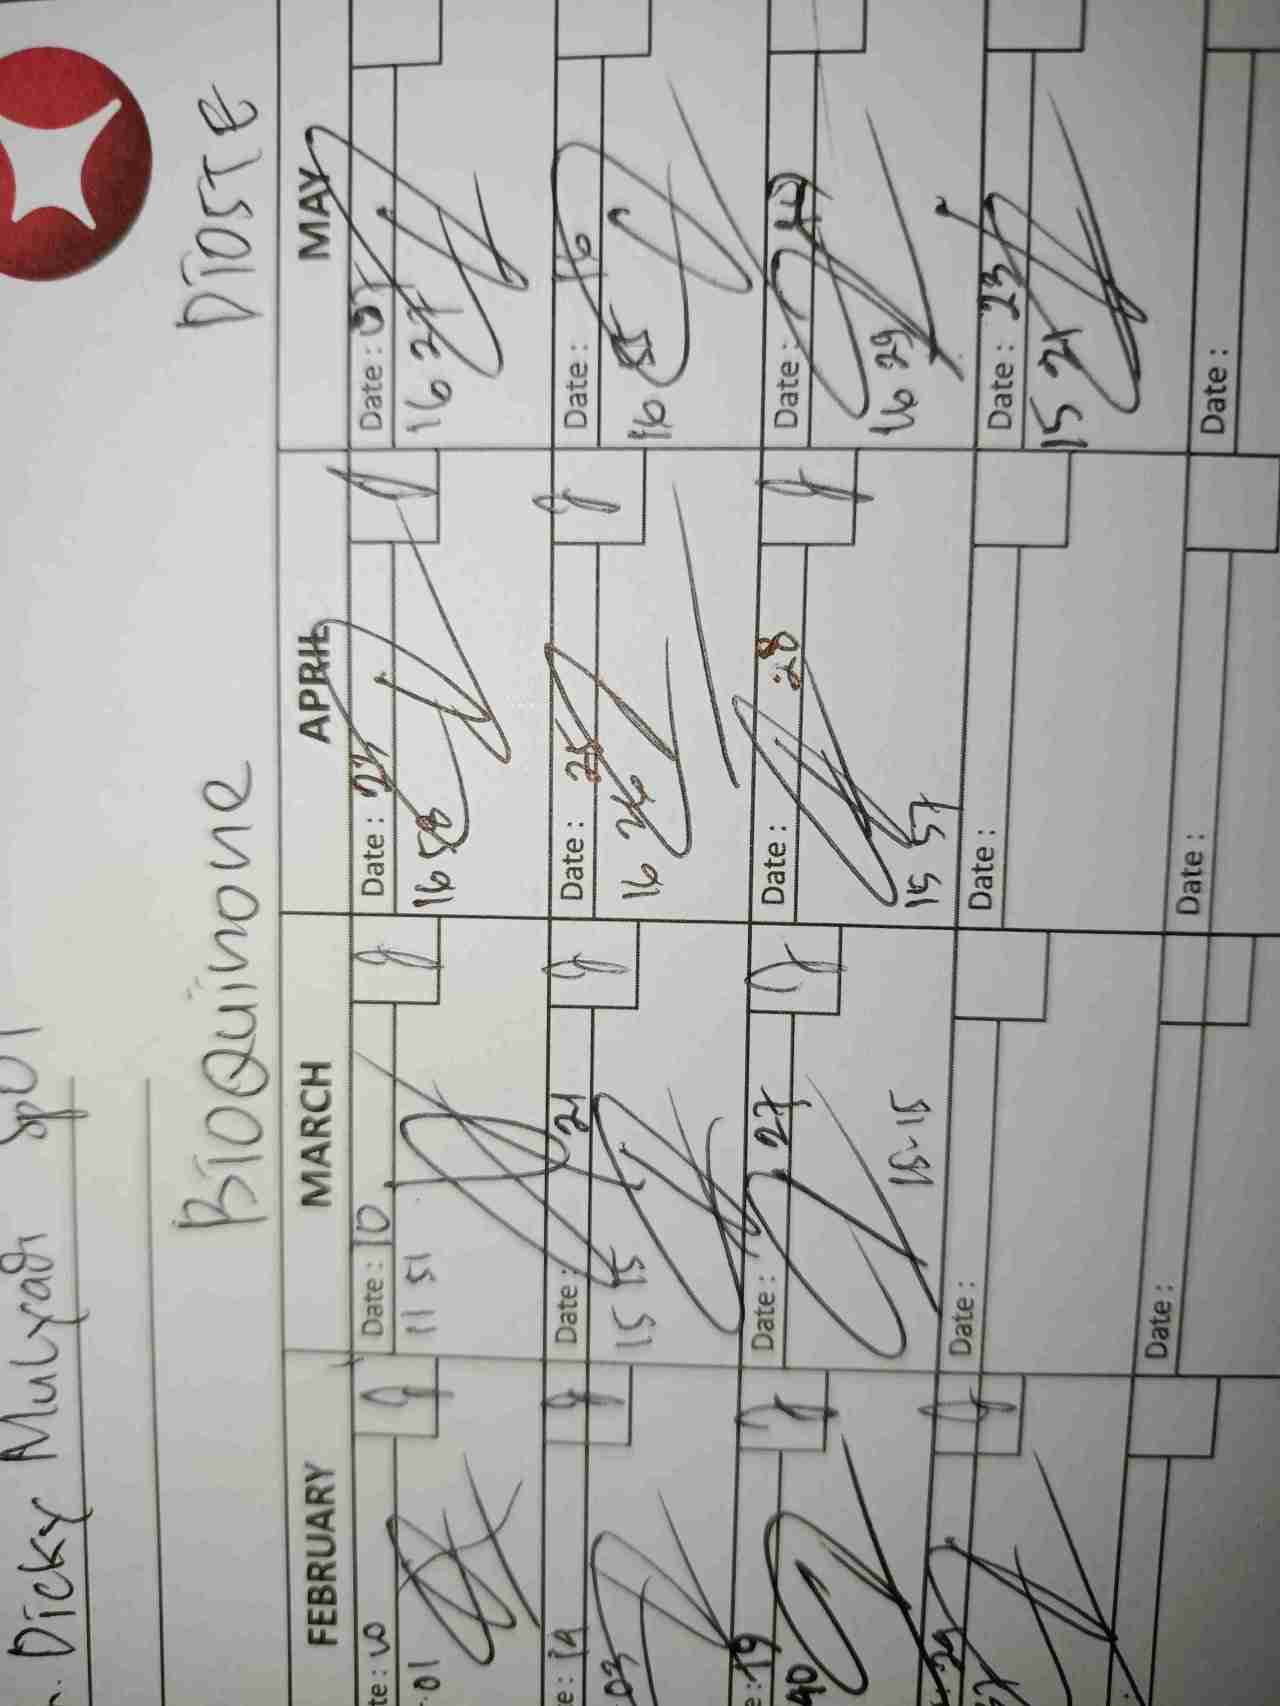 Dicky Mulyadi SpOT
BioQuinone
DIOSTE
FEBRUARY MARCH APRIL MAY
te: 10 Date: 10 Date: 22 Date:
01 11 51 16 58 16 27
e: 19 Date: 21 Date: 25 Date: 16
03 15 15 16 26 16 55
e: 19 Date: 27 Date: 28 Date:
40 15 57 16 29
Date: Date: Date: 23
15 21
Date: Date: Date: